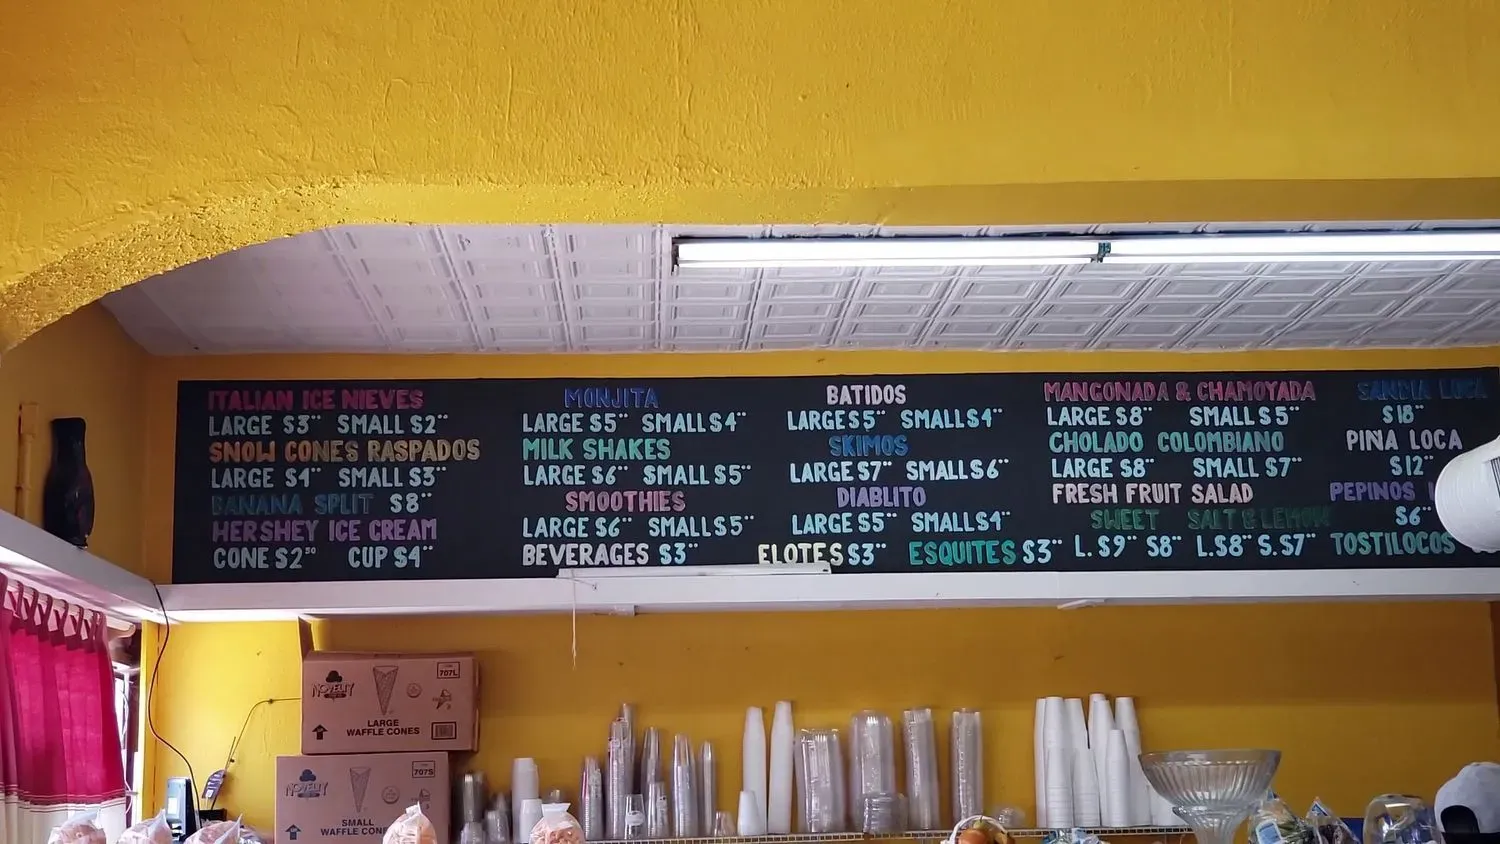 ITALIAN ICE NIEVES
LARGE $3⁰⁰ SMALL $2⁰⁰
SNOW CONES RASPADOS
LARGE $4⁰⁰ SMALL $3⁰⁰
BANANA SPLIT $8⁰⁰
HERSHEY ICE CREAM
CONE $2⁵⁰ CUP $4⁰⁰
MONJITA
LARGE $5⁰⁰ SMALL $4⁰⁰
MILK SHAKES
LARGE $6⁰⁰ SMALL $5⁰⁰
SMOOTHIES
LARGE $6⁰⁰ SMALL $5⁰⁰
BEVERAGES $3⁰⁰
BATIDOS
LARGE $5⁰⁰ SMALL $4⁰⁰
SKIMOS
LARGE $7⁰⁰ SMALL $6⁰⁰
DIABLITO
LARGE $5⁰⁰ SMALL $4⁰⁰
ELOTES $3⁰⁰ ESQUITES $3⁰⁰
MANGONADA & CHAMOYADA
LARGE $8⁰⁰ SMALL $5⁰⁰
CHOLADO COLOMBIANO
LARGE $8⁰⁰ SMALL $7⁰⁰
FRESH FRUIT SALAD
SWEET SALT & LEMON
L. $9⁰⁰ $8⁰⁰ L. $8⁰⁰ S. $7⁰⁰
SANDIA LOCA
$18⁰⁰
PIÑA LOCA
$12⁰⁰
PEPINOS
$6⁰⁰
TOSTILOCOS
NOVELTY
707L
LARGE
WAFFLE CONES
NOVELTY
707S
SMALL
WAFFLE CONES